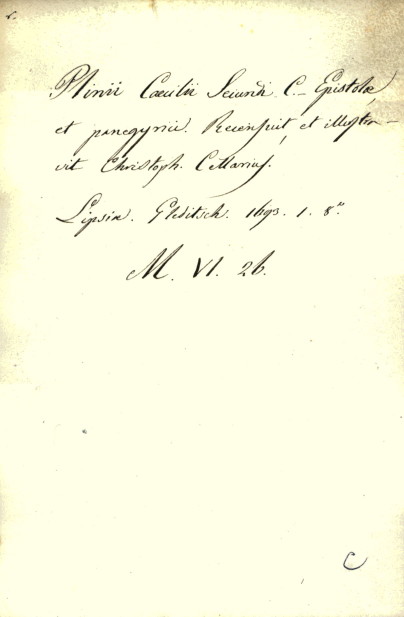 Plinii Coecilii Secundi C_ Epistolæ
et panegyrici. Recensuit et illustra-
vit Christoph. Cellarius.
Lipsiæ. Gleditsch. 1693. 1. 8°.
M. VI. 26.
C